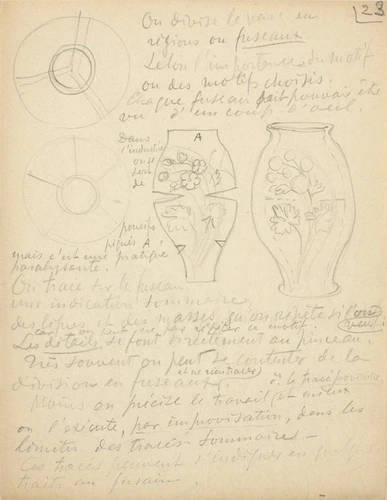 23
On divise le vase en
régions ou fuseaux
Selon l'importance du motif
ou des motifs choisis.
Chaque fuseau doit pouvoir être
vu d'un coup d'œil.
Dans
l'industrie
on se
sert
de
poncifs
piqués A
A
mais c'est une pratique
paralysante.
On trace sur le fuseau
une indication sommaire
des lignes et des masses qu'on répète si l'on
car on peut ne pas répéter ce motif
Les détails se font directement au pinceau.
Très souvent on peut se contenter de la
division en fuseaux
et ne rien tracer
Moins on précise le travail et mieux
on l'exécute, par improvisation, dans les
limites des tracés sommaires -
Ces tracés peuvent s'indiquer en quelques
traits au fusain